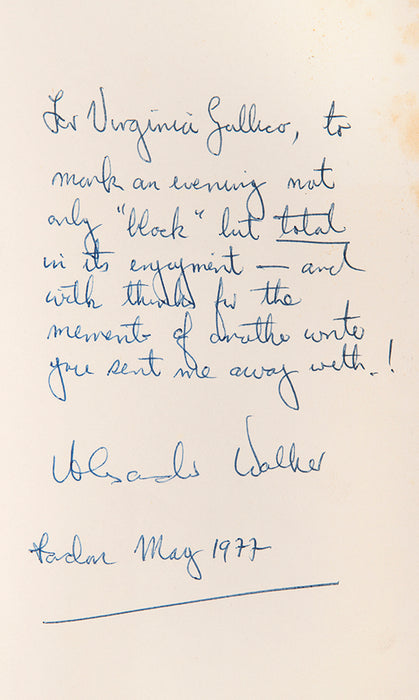 For Virginia Gallico, to
mark an evening not
only "block" but total
in its enjoyment — and
with thanks for the
memento of another writer
you sent me away with..!
Alexander Walker
London May 1977